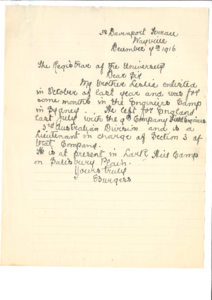 Davenport Terrace
Wayville
December 7th 1916
The Registrar of the University
Dear Sir
My brother Leslie enlisted
in October of last year and was for
some months in the Engineers Camp
in Sydney. He left for England
last July with the 9th Company Field Engineers
3rd Australian Division and is a
Lieutenant in charge of Section 3 of
that Company.
He is at present in Lark Hill Camp
on Salisbury Plain.
Yours truly
Burgess